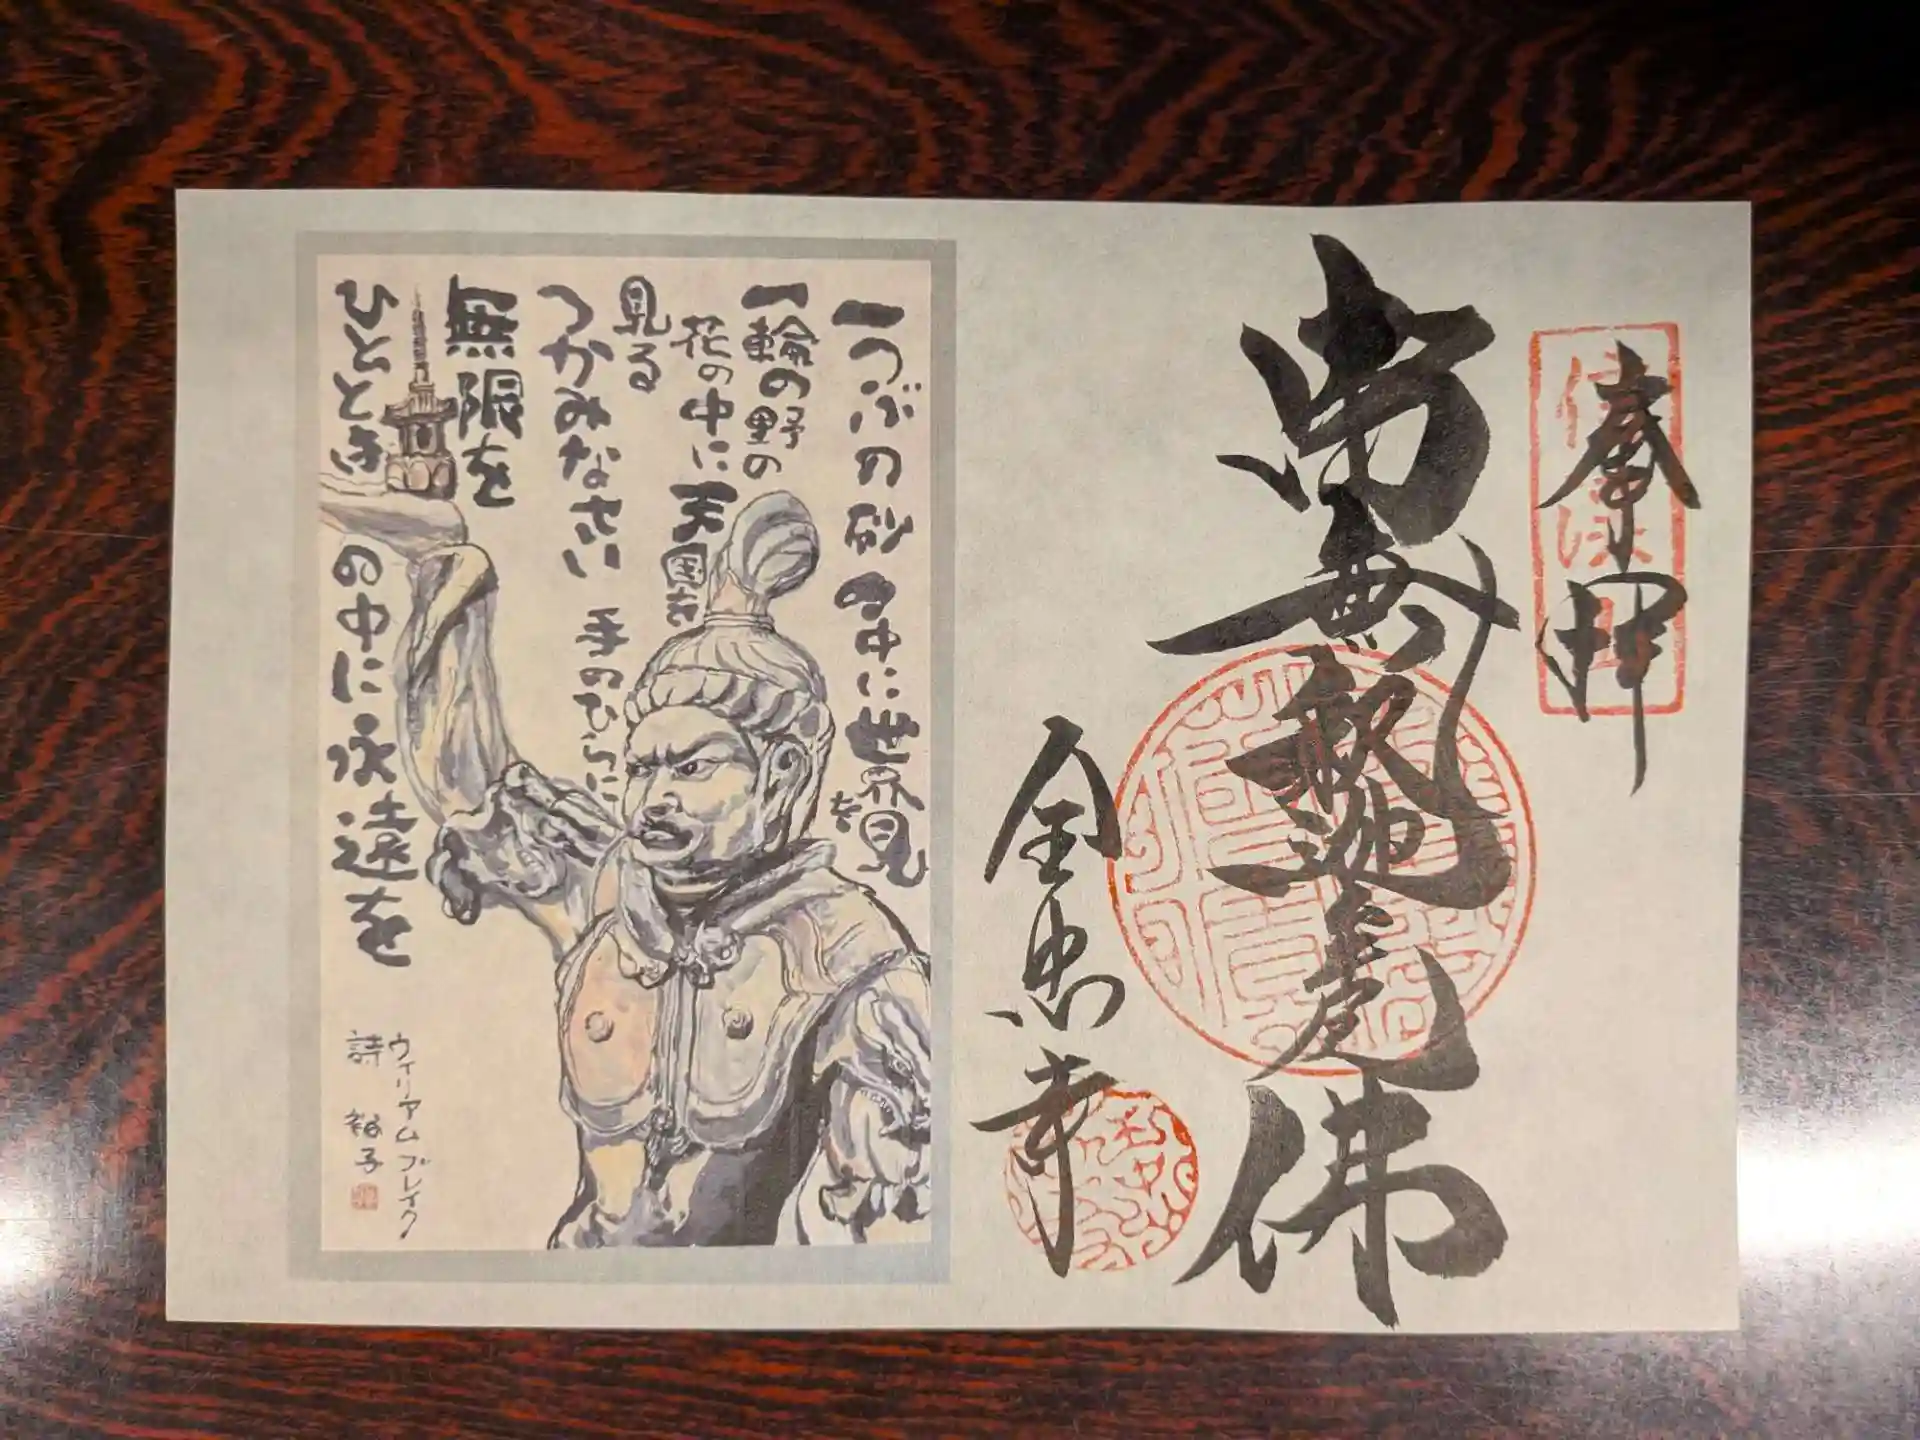 奉拝
南無釈迦牟尼佛
全忠寺
一つぶの砂の中に世界を見
一輪の野の
花の中に天国を
見る
つかみなさい 手のひらに
無限を
ひとときの中に永遠を
ウィリアムブレイク
詩